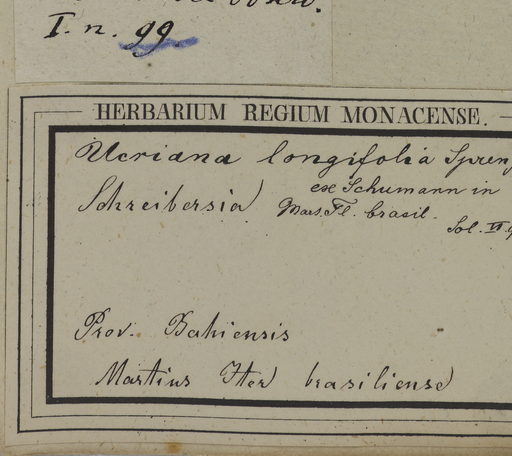 I. n. 99
HERBARIUM REGIUM MONACENSE.
Ucriana longifolia Spreng
ex Schumann in
Schreibersia Mars. Fl. brasil.
Prov. Bahiensis
Martius Iter brasiliense